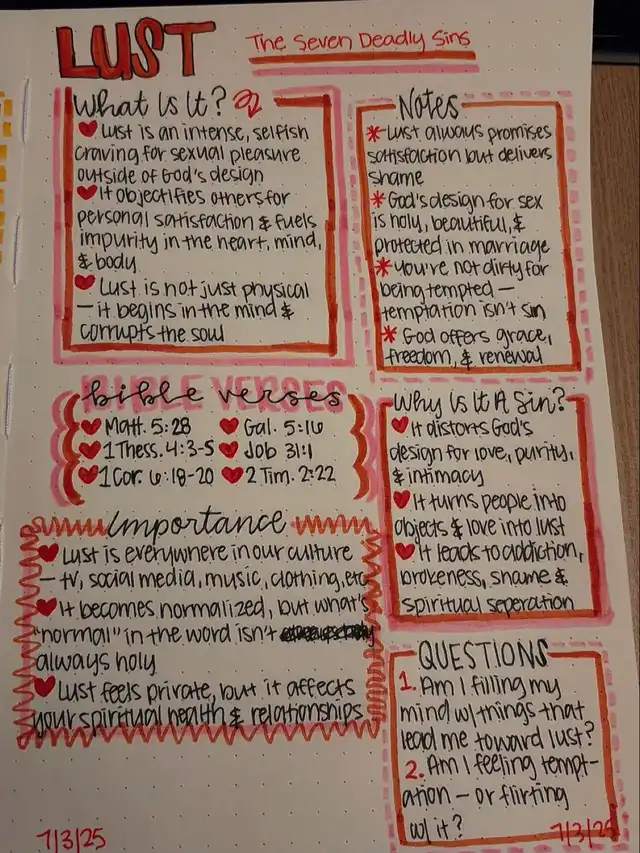 LUST
The Seven Deadly Sins
What Is It?
Lust is an intense, selfish
craving for sexual pleasure
outside of God's design
It objectifies others for
personal satisfaction & fuels
impurity in the heart, mind,
& body
Lust is not just physical
— it begins in the mind &
corrupts the soul
Notes
* Lust always promises
satisfaction but delivers
shame
* God's design for sex
is holy, beautiful, &
protected in marriage
* You're not dirty for
being tempted —
temptation isn't sin
* God offers grace,
freedom, & renewal
BIBLE VERSES
bible verses
Matt. 5:28
Gal. 5:16
1 Thess. 4:3-5
Job 31:1
1 Cor. 6:18-20
2 Tim. 2:22
Why Is It A Sin?
It distorts God's
design for love, purity,
& intimacy
It turns people into
objects & love into lust
It leads to addiction,
brokeness, shame &
spiritual seperation
Importance
Lust is everywhere in our culture
— tv, social media, music, clothing, etc
It becomes normalized, but what's
"normal" in the word isn't
always holy
Lust feels private, but it affects
your spiritual health & relationships
QUESTIONS
1. Am I filling my
mind w/ things that
lead me toward lust?
2. Am I feeling tempt-
ation — or flirting
w/ it?
7/3/25
7/3/25